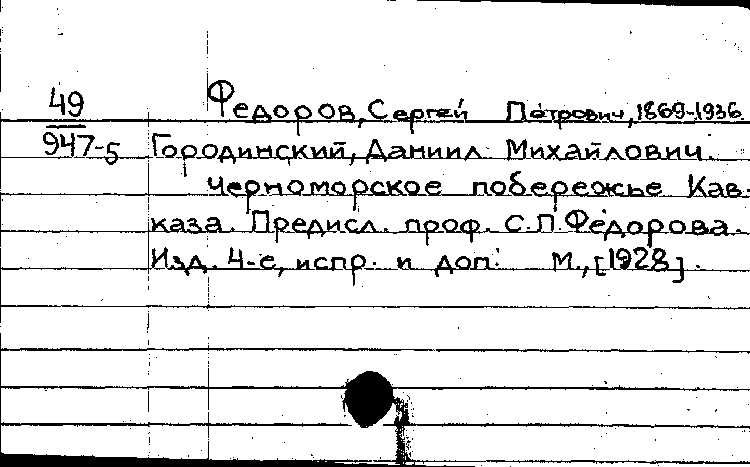 49
947-5
Федоров, Сергей Петрович, 1869-1936
Городинский, Даниил Михайлович.
Черноморское побережье Кав-
каза. Предисл. проф. С.П. Федорова.
Изд. 4-е, испр. и доп. М., [1928].